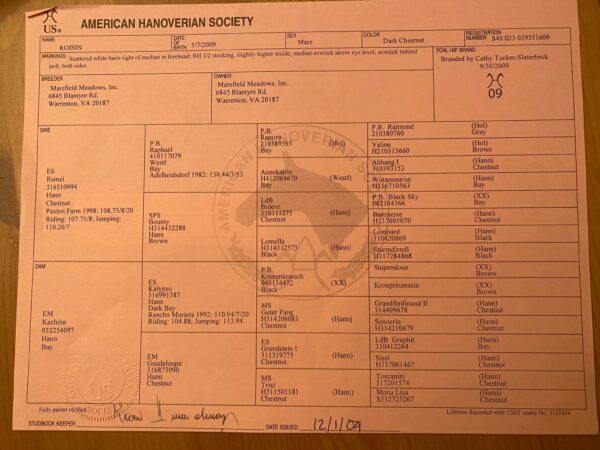 AMERICAN HANOVERIAN SOCIETY
US.
NAME
ROISIN
DATE OF BIRTH 5/7/2009
SEX
Mare
COLOR
Dark Chestnut
REGISTRATION NUMBER 840 023 039551609
MARKINGS Scattered white hairs right of median in forehead; RH 1/2 stocking, slightly higher inside; median cowlick above eye level; cowlick behind
poll, both sides.
FOAL HIP BRAND
Branded by Cathy Tucker-Slaterbeck
9/30/2009
09
BREEDER
Marefield Meadows, Inc.
6845 Blantyre Rd.
Warrenton, VA 20187
OWNER
Marefield Meadows, Inc.
6845 Blantyre Rd.
Warrenton, VA 20187
SIRE
ES
Romzi
316510994
Hann
Chestnut
Paxton Farm 1998: 108.75/8/20
Riding: 107.71/8; Jumping:
110.20/7
DAM
EM
Kachina
032254097
Hann
Bay
P.B.
Raphael
410117079
Westf
Bay
Adelheidsdorf 1982: 130.44/3/53
SPS
Bounty
H314432288
Hann
Brown
ES
Kalypso
316991387
Hann
Dark Bay
Rancho Murieta 1992: 110.04/7/20
Riding: 104.88; Jumping: 113.94
EM
Guadeloupe
316873090
Hann
Chestnut
P.B.
Ramiro
210389565 (Hol)
Bay
Annekatrin
H412064670 (Westf)
Bay
LdB
Bolero
310111275 (Hann)
Chestnut
Lomella
H314312575 (Hann)
Black
P.B.
Kronenkranich
060134472 (XX)
Black
MS
Guter Fang
H314206083 (Hann)
Chestnut
ES
Grundstein I
311319775 (Hann)
Chestnut
MS
Trixi
H311501181 (Hann)
Chestnut
P.B. Raimond (Hol)
210380760 Gray
Valine (Hol)
H210313660 Brown
Abhang I (Hann)
310393153 Chestnut
Wotansmeise (Hann)
H316710563 Bay
P.B. Black Sky (XX)
062164366 Bay
Baronesse (Hann)
H317605070 Chestnut
Lombard (Hann)
310420869 Black
Sturmdirndl (Hann)
H317284868 Black
Stupendous (XX)
Brown
Kronprinzessin (XX)
Brown
Grandferdinand II (Hann)
314409678 Chestnut
Sennerin (Hann)
H314210679 Chestnut
LdB Graphit (Hann)
310412264 Bay
Sissi (Hann)
H317061467 Chestnut
Toscanini (Hann)
317201574 Chestnut
Mona Lisa (Hann)
S112725267 Chestnut
Fully parent verified.
STUDBOOK KEEPER
DATE ISSUED 12/1/09
Lifetime Recorded with USEF under No. 5111454